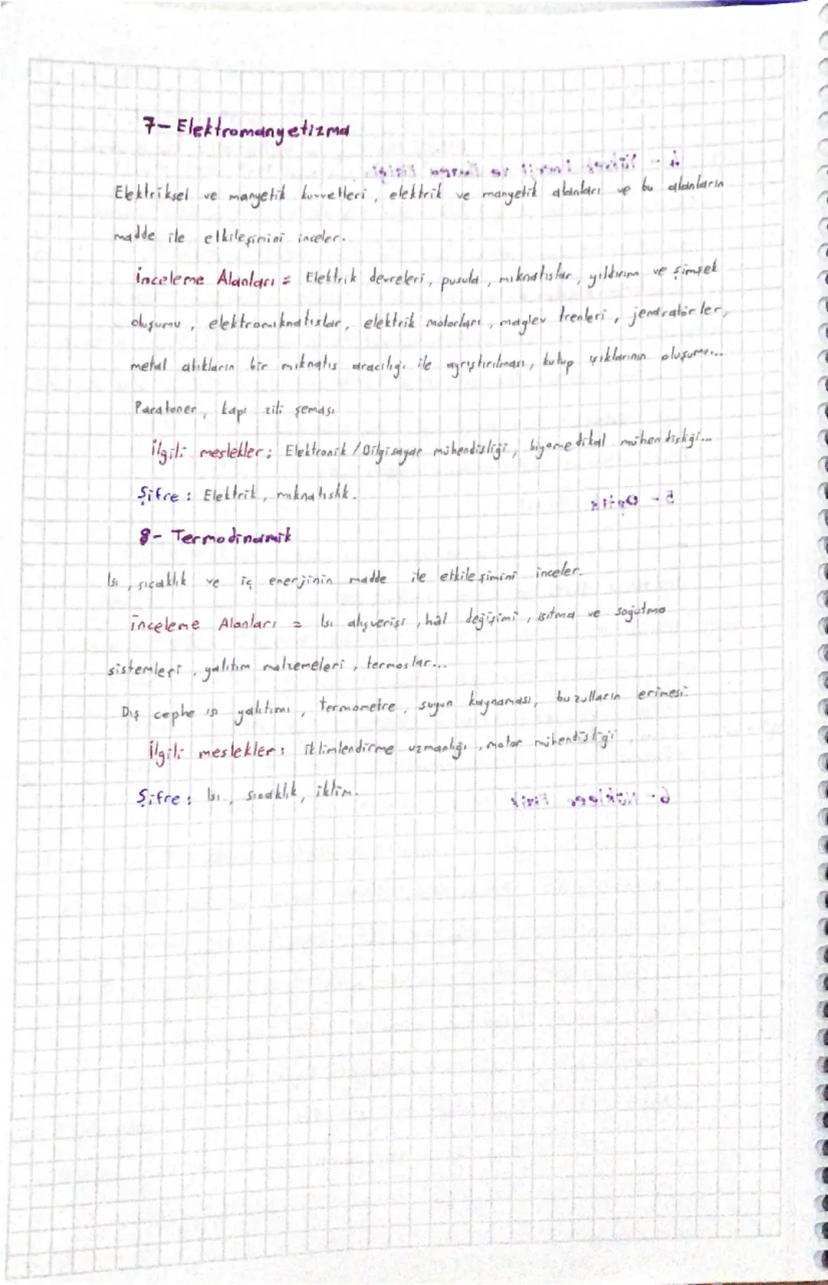 7- Elektromanyetizma
4- Yüksek Enerji ve Plazma Fiziği
Elektriksel ve manyetik kuvvetleri, elektrik ve manyetik alanları ve bu alanların
madde ile etkileşimini inceler.
İnceleme Alanları = Elektrik devreleri, pusula, mıknatıslar, yıldırım ve şimşek
oluşumu, elektromıknatıslar, elektrik motorları, maglev trenleri, jeneratörler,
metal atıkların bir mıknatıs aracılığı ile ayrıştırılması, kutup ışıklarının oluşumu...
Paratoner, kapı zili şeması
İlgili meslekler: Elektronik/Bilgisayar mühendisliği, biyomedikal mühendisliği...
Şifre: Elektrik, mıknatıslık.
5- Optik
8- Termodinamik
Isı, sıcaklık ve iç enerjinin madde ile etkileşimini inceler.
İnceleme Alanları = Isı alışverişi, hâl değişimi, ısıtma ve soğutma
sistemleri, yalıtım malzemeleri, termoslar...
Dış cephe ısı yalıtımı, termometre, suyun kaynaması, buzulların erimesi.
İlgili meslekler: iklimlendirme uzmanlığı, motor mühendisliği
Şifre: Isı, sıcaklık, iklim.
6- Nükleer Fizik